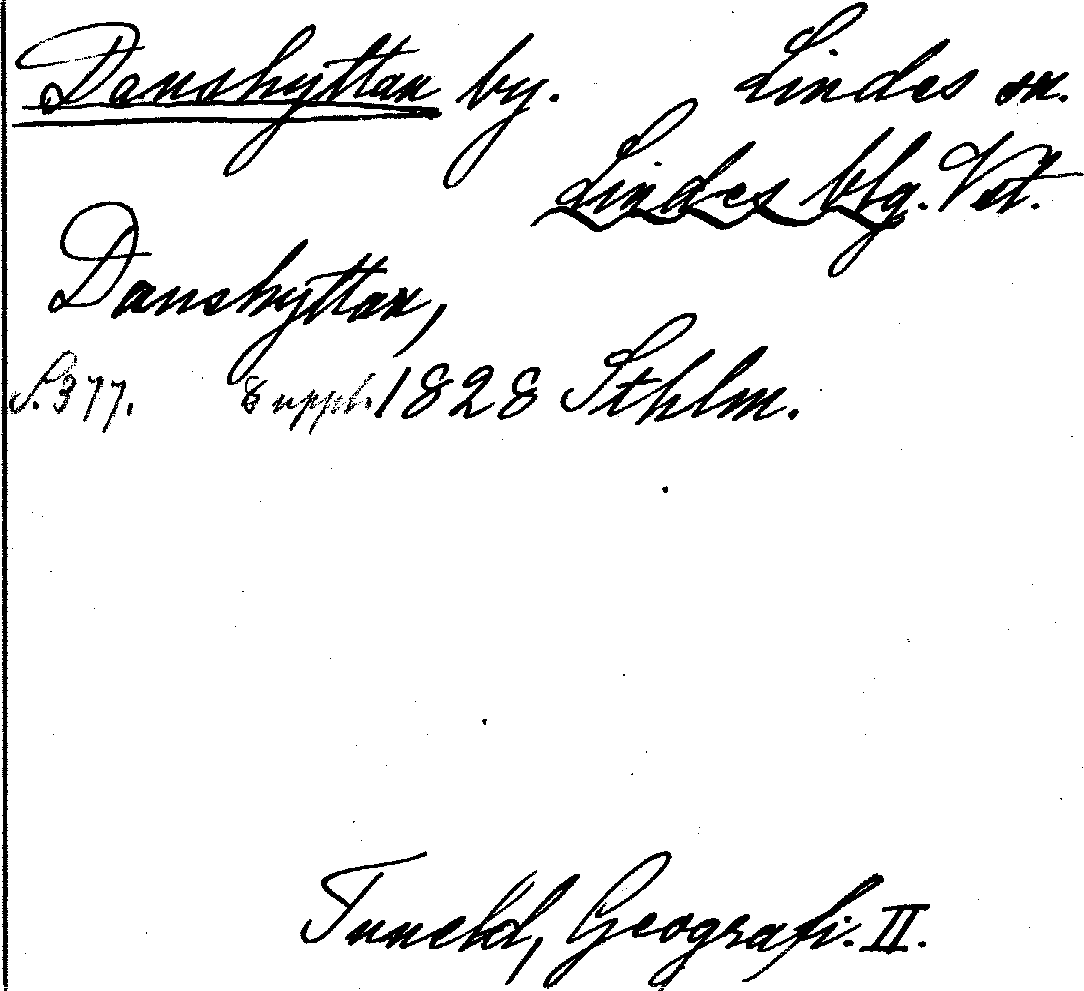 Danshyttan by. Lindes sn.
Lindes blg. Vst.
Danshyttan,
S. 377. Uppl. 1828 Sthlm.
Tuneld, Geografi. II.